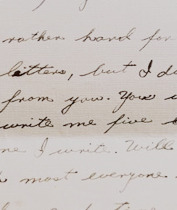 rather hard for
letters, but I d
from you. You
write me five
I write. Will
most everyone